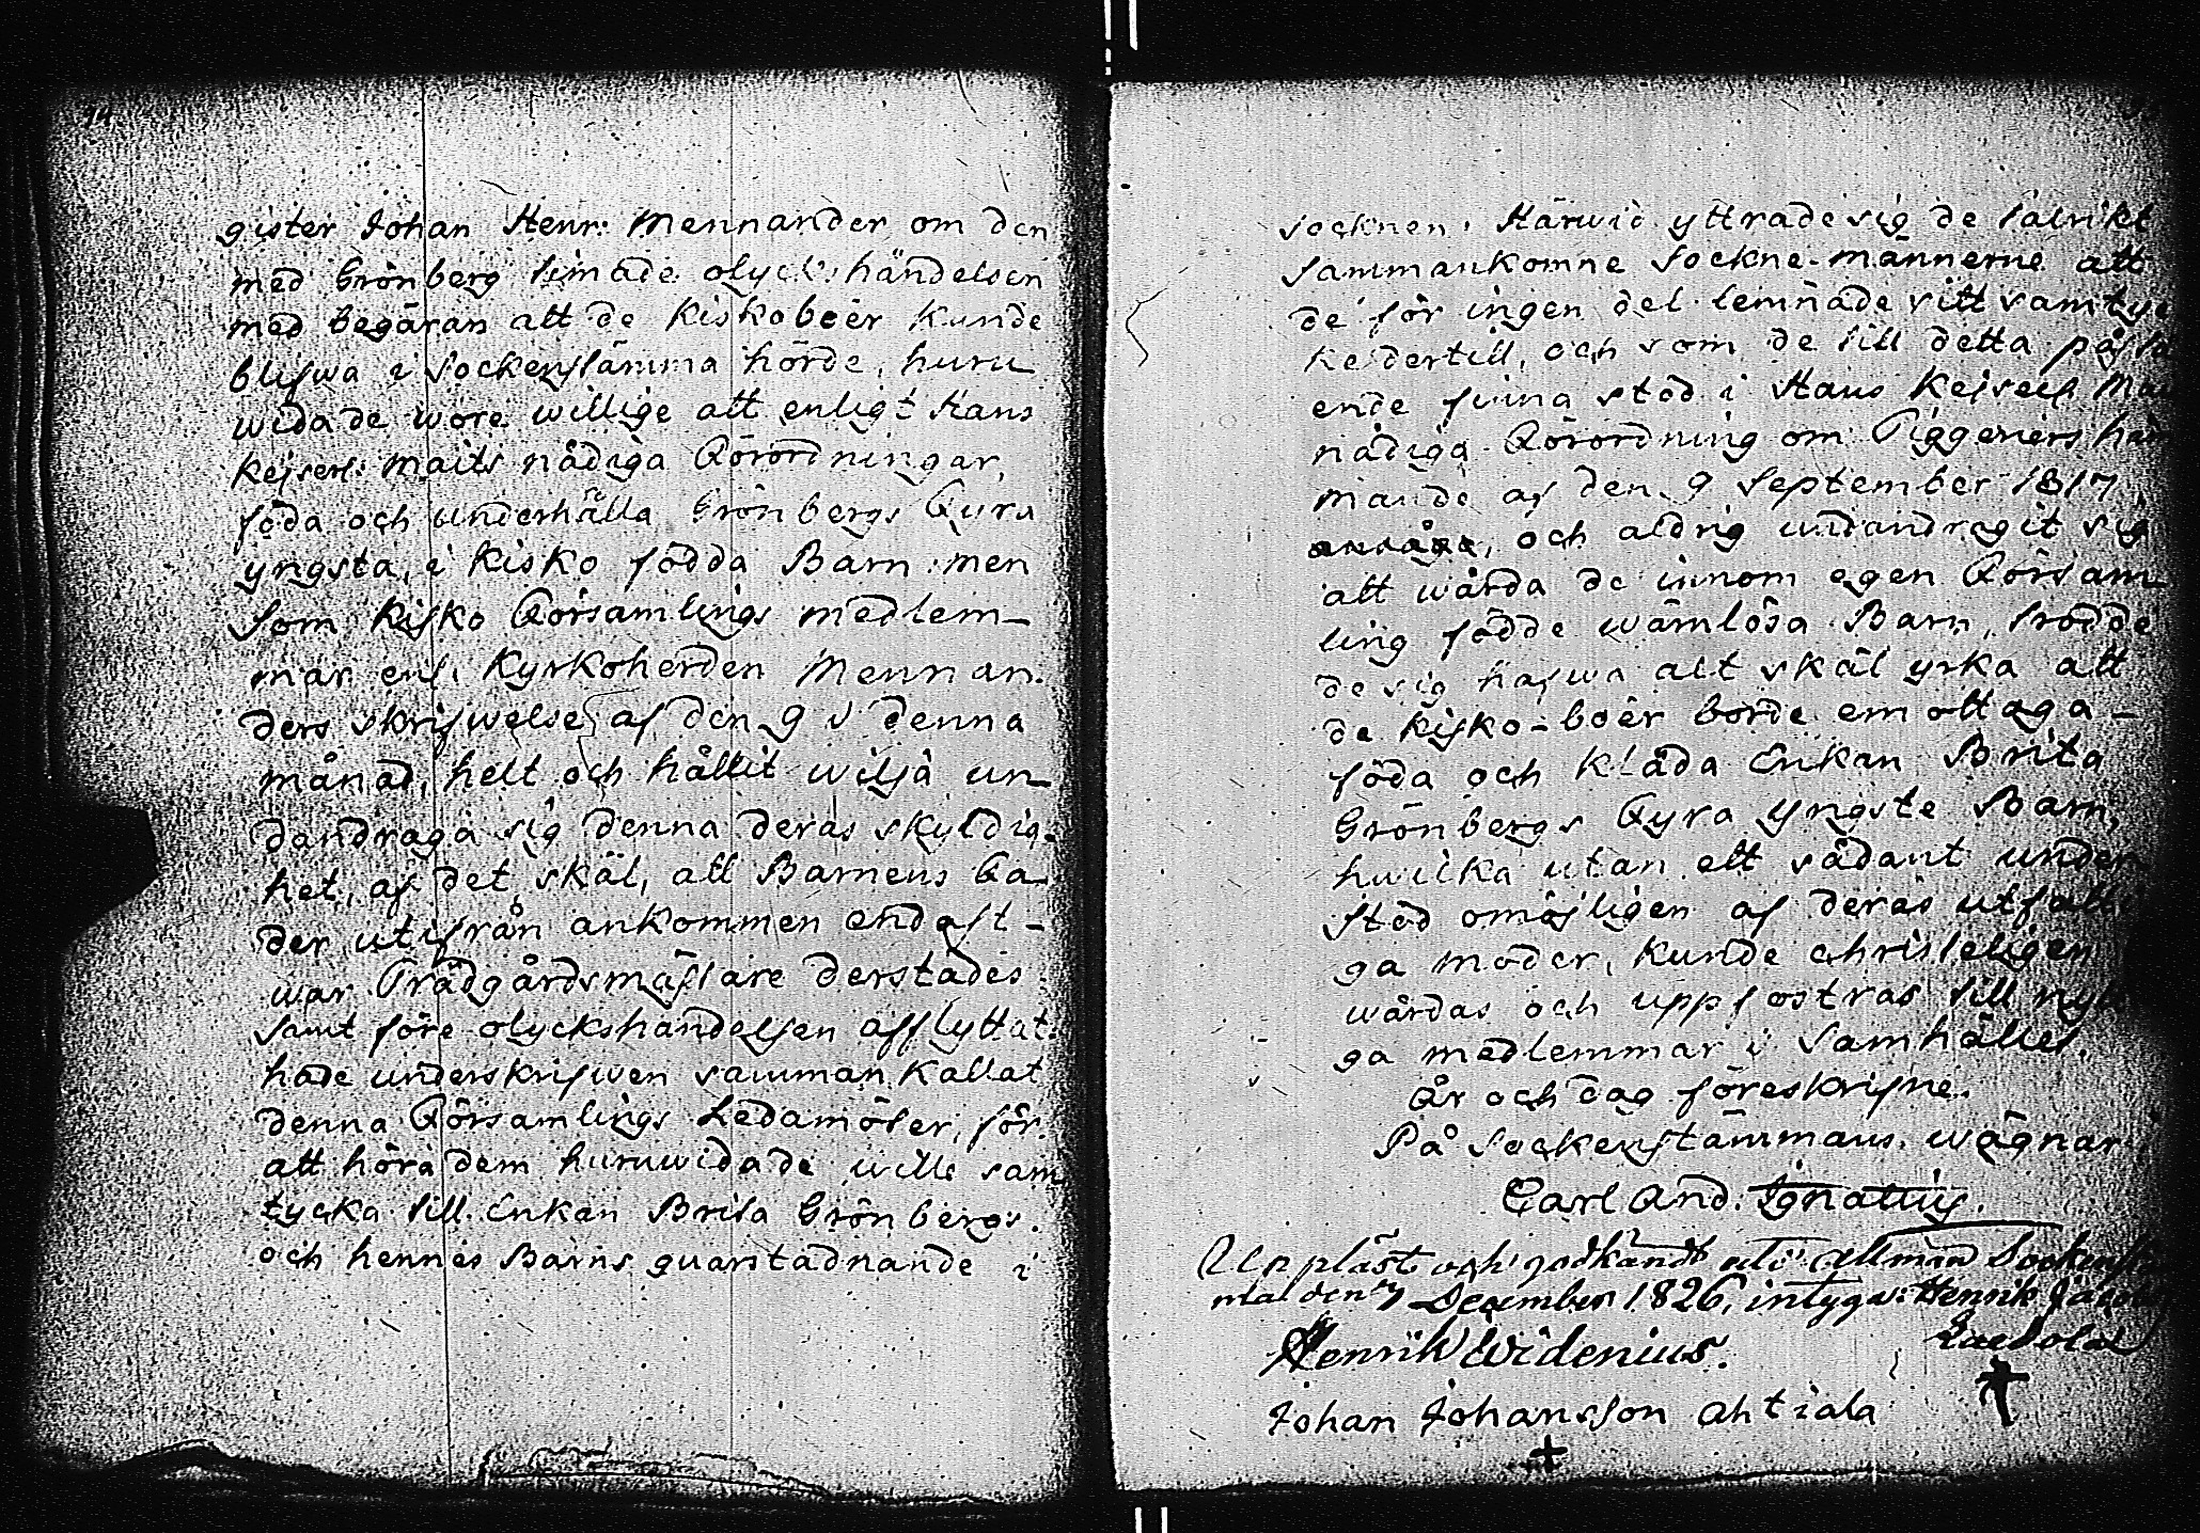 gister Johan Henr: Mennander om den
med Grönberg timade olycks händelsen
med begäran att de Kiskoboer kunde
blifwa i Sockenstämma hörde, huru
wida de wore willige att enligt Hans
Kejserl: Maits nådiga Förordningar,
föda och underhålla Grönbergs Fyra
yngsta, i Kisko födda Barn: men
Som Kisko Församlings medlem-
mar enl. Kyrkoherden Mennan-
ders skrifwelse af den 9 i denna
månad, helt och hållit wilja un-
dandraga sig denna deras skyldig-
het, af det skäl, att Barnens Fa-
der utifrån ankommen endast -
war Trädgårdsmästare derstädes
samt före olyckshändelsen afflyttat.
hade underskrifwen samman kallat
denna Församlings Ledamöter, för.
att höra dem huruwida de wille sam
tycka till Enkan Brita Grönbergs.
och hennes Barns quarstadnande i
Socknen. Härwid yttrade sig de talrikt
Sammankomne Sockne-männerne att
de för ingen del lemnade sitt samtyc
ke dertill, och som de till detta påstå
ende finna stöd i Hans Kejserl Mai
nådiga Förordning om Tiggeriers häm
mande af den 9 September 1817,
och aldrig undandragit sig
att wårda de innom egen Försam
ling födde wärnlösa Barn, trodde
de sig hafwa allt skäl yrka att
de Kisko-boer borde emottaga -
föda och kläda Enkan Brita
Grönbergs Fyra yngste Barn,
hwilka utan ett sådant under
stöd omöjligen af deras utfatti
ga moder, kunde christeligen
wårdas och uppfostras till nyt
ga medlemmar i Samhället.
År och dag föreskrifne.
På Sockenstämmans wägnar
Carl And. Ignatius.
Uppläst och godkändt uti allmän Sockenstä
ma den 7 December 1826, intyga: Henrik
Henrik Widenius.
Johan Johansson Ahtiala